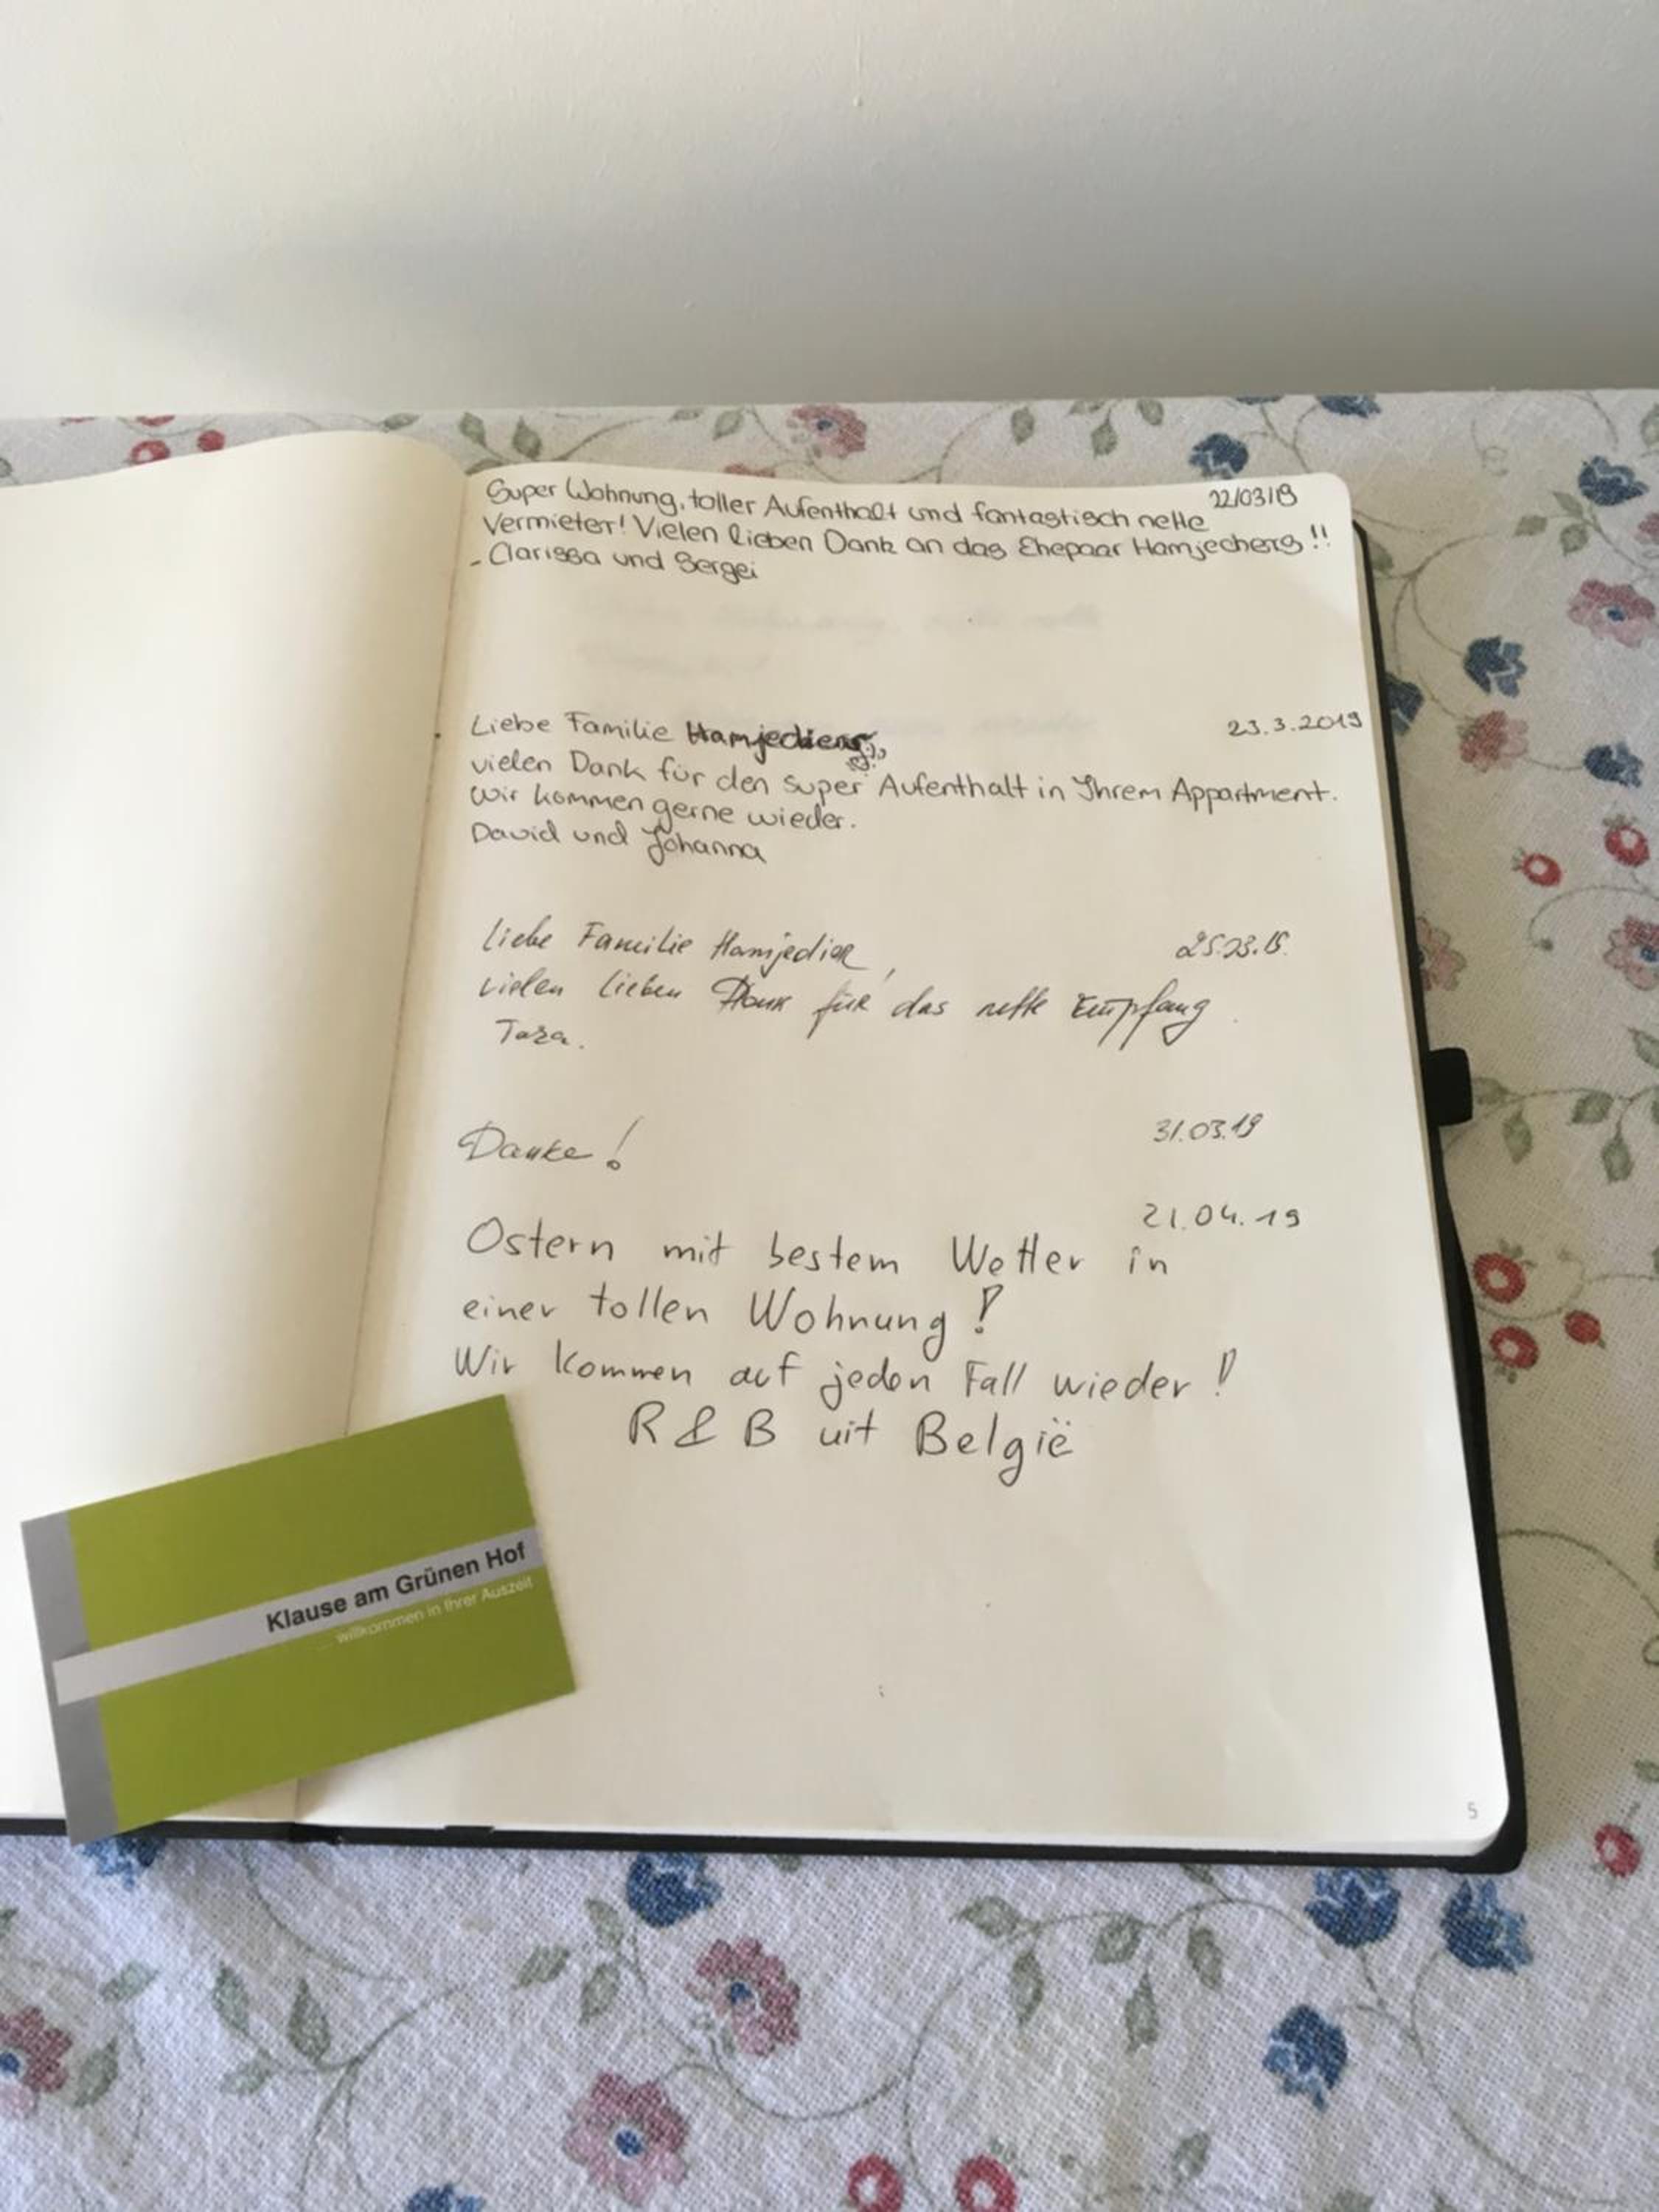 22/03/19
Super Wohnung, toller Aufenthalt und fantastisch nette
Vermieter! Vielen lieben Dank an das Ehepaar Hamjediers!!
- Clarissa und Sergei
23.3.2019
Liebe Familie Hamjediers,
vielen Dank für den super Aufenthalt in Ihrem Appartment.
Wir kommen gerne wieder.
David und Johanna
25.03.19.
Liebe Familie Hamjedier,
vielen lieben Dank für das nette Empfang
Taza.
31.03.19
Danke!
21.04.19
Ostern mit bestem Wetter in
einer tollen Wohnung!
Wir kommen auf jeden Fall wieder!
R & B uit België
Klause am Grünen Hof
... willkommen in Ihrer Auszeit
5